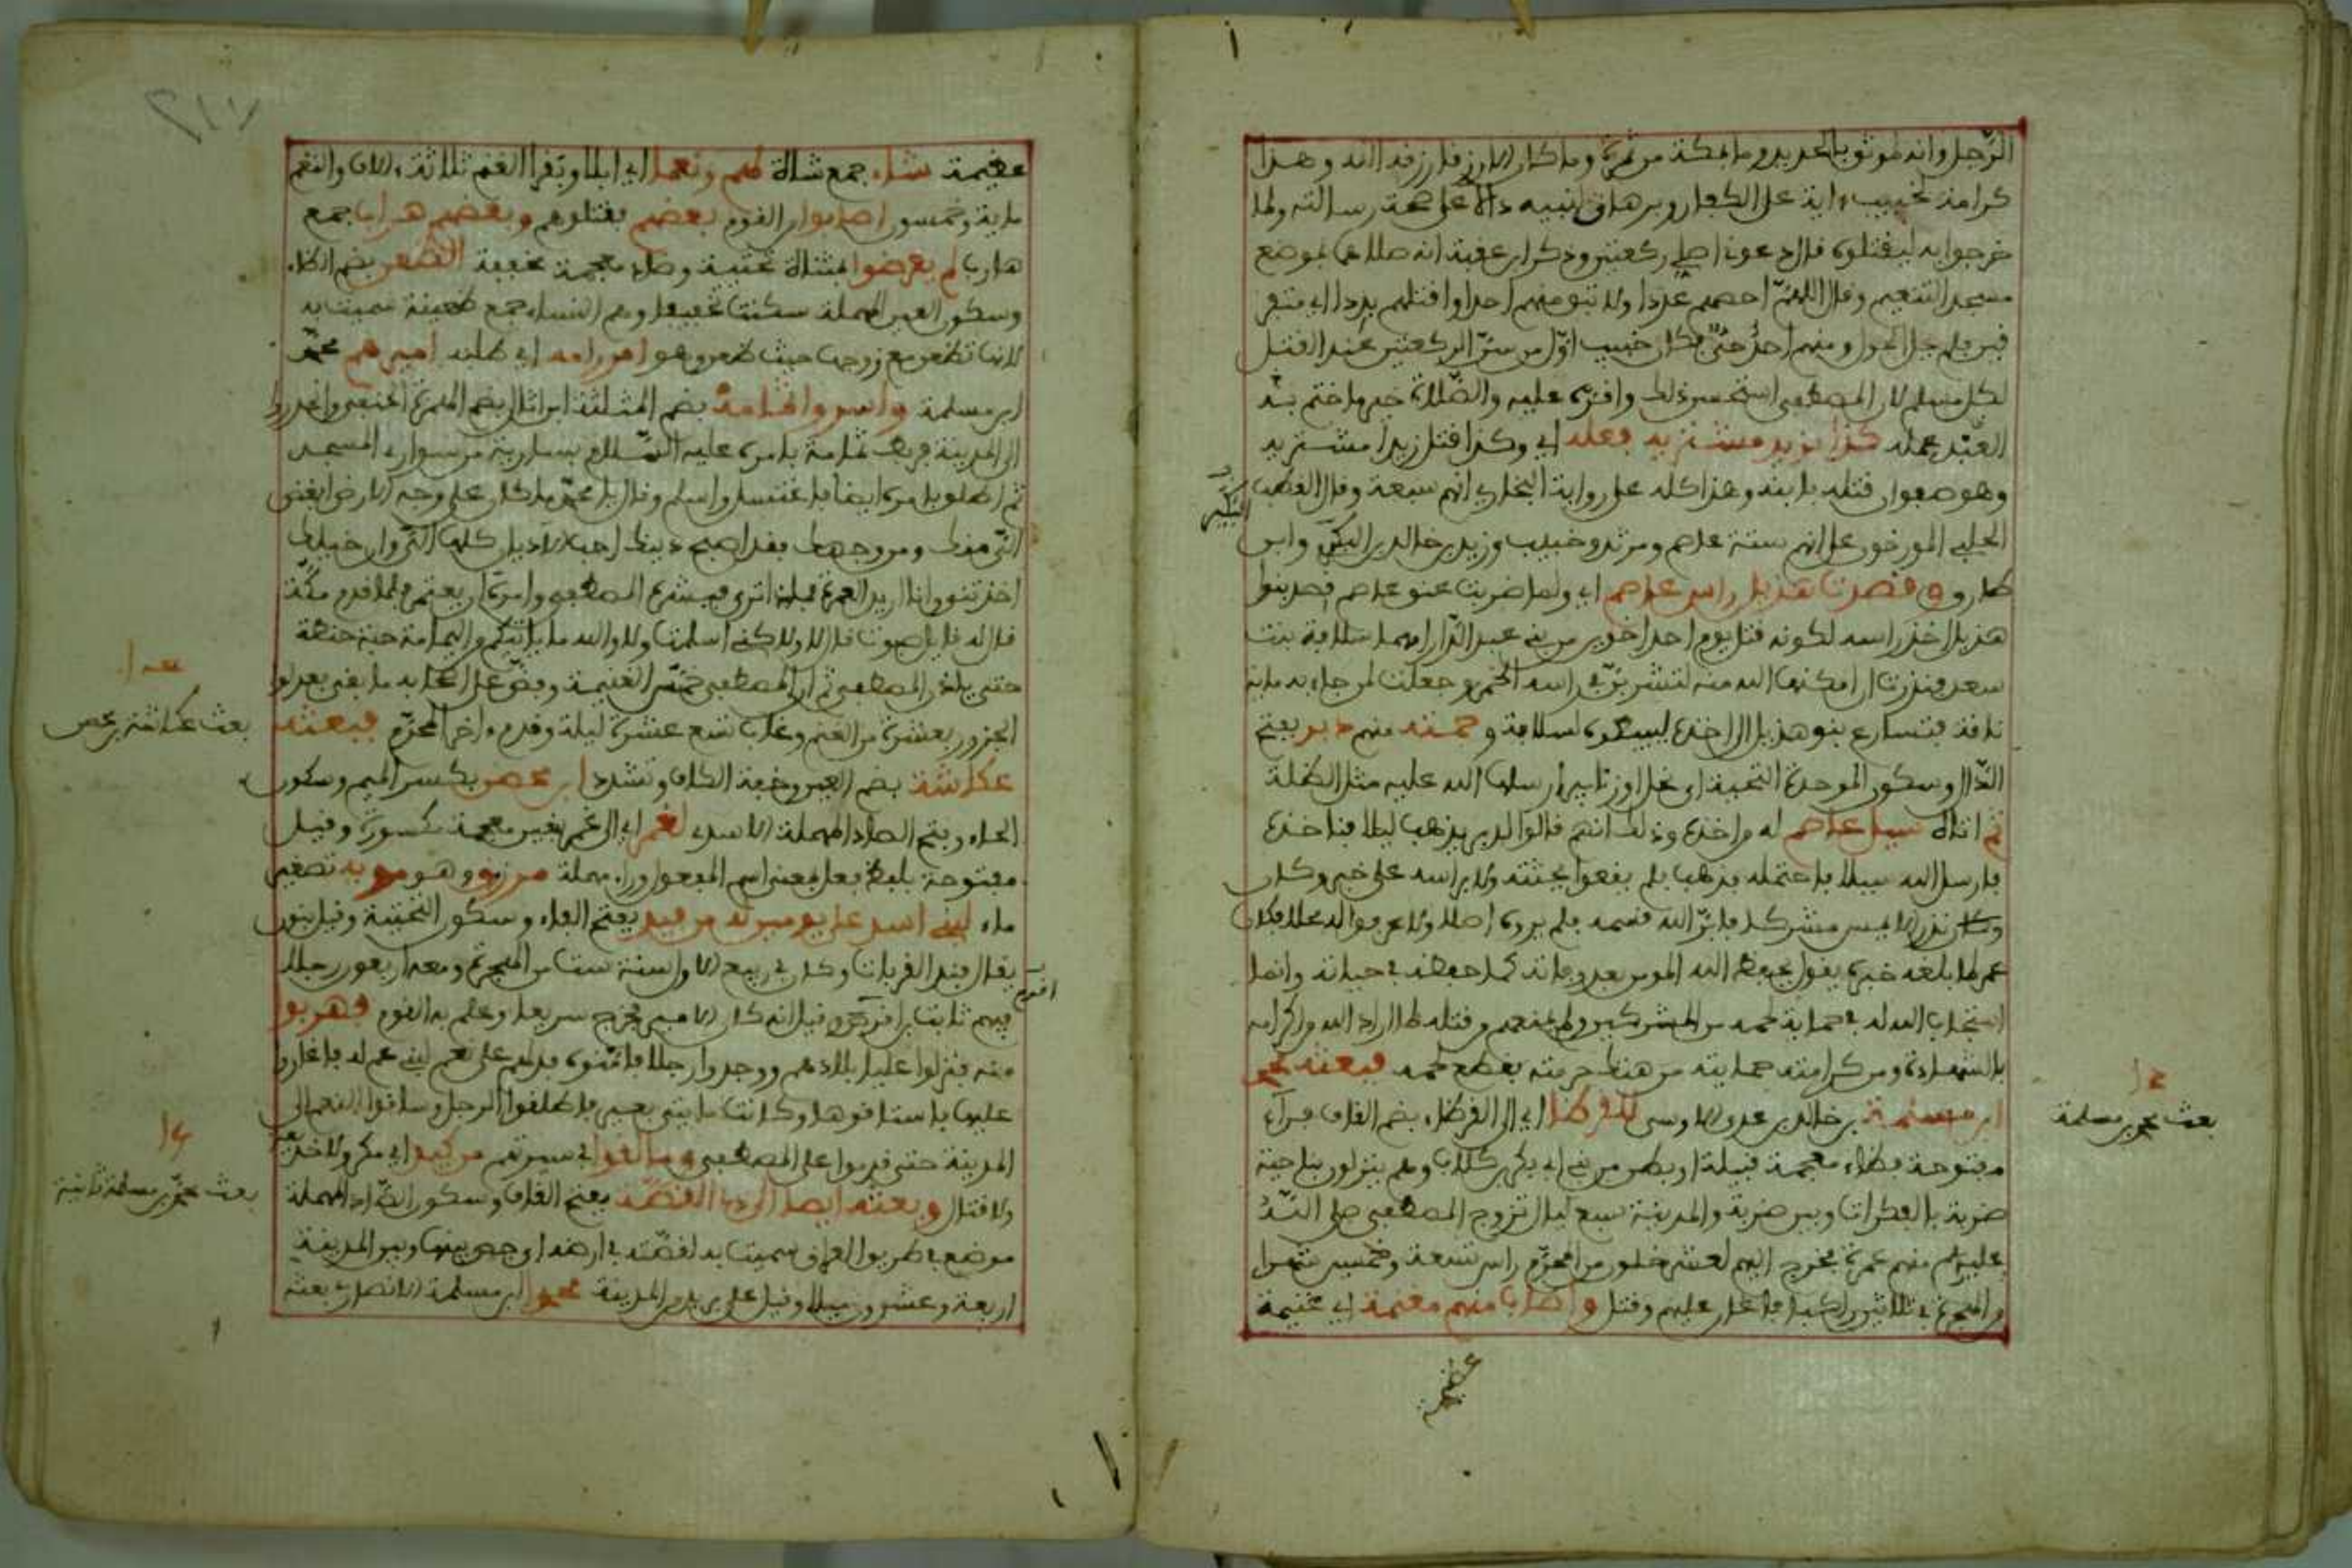 الرجل وانه لموثق بالحديد وما بمكة من ثمرة وما كان الا رزق رزقه الله وهذا
كرامة لخبيب واية على الكفار وبرهان لنبيه دالا على صحة رسالته ولما
خرجوا به ليقتلوه قال دعوني اصلي ركعتين وذكر ابن عقبة انه صلاهما بموضع
مسجد التنعيم وقال اللهم احصهم عددا ولا تبق منهم احدا واقتلهم بددا اي متفر
قين فلم يحل الحول ومنهم احد حي فكان خبيب اول من سن الركعتين عند القتل
لكل مسلم لان المصطفى استحسن ذلك واقره عليه والصلاة خير ما ختم به
العبد عمله كذا بزيد مشتريه فعله اي وكذا قتل زيدا مشتريه
وهو صفوان قتله بابيه وهذا كله على رواية البخاري انهم سبعة وقال القطب
الحلبي المورخون على انهم ستة عاصم ومرثد وخبيب وزيد وخالد بن البكير وابن
طارق وقصدت هذيل راس عاصم اي ولما ضربت عنق عاصم قصد بنوا
هذيل اخذ راسه لكونه قتل يوم احد اخوين من بني عبد الدار امهما سلافة بنت
سعد فنذرت ان امكنها الله منه لتشربن في راسه الخمر وجعلت لمن جاء به ماية
ناقة فتسارع بنو هذيل الى اخذه ليبيعوه لسلافة و حمته منهم دبر بفتح
الدال وسكون الموحدة التحتية اي نحل او زنابير ارسلها الله عليه مثل الظلة
ثم اتاه سيل عاصم له من اخذه وذلك انهم قالوا الدبر يذهب ليلا فناخذه
فارسل الله سيلا فاحتمله فذهب فلم يقعوا بجثته ولا براسه على خبر وكان
وكان نذر الا يمس مشركا فابر الله قسمه فلم يروه اصلا ولا عرفوا له محلا فكان
عمر لما بلغه خبره يقول يحفظ الله المومن بعد وفاته كما حفظه في حياته وانما
استجاب الله له في حماية لحمه من المشركين ولم يمنعهم من قتله لما اراد الله من اكرامه
بالشهادة ومن كرامته حمايته من هتك حرمته بقطع لحمه فبعثه محمد
ابن مسلمة بن خالد بن عدي الاوسي للقرطا اي الى القرطاء بضم القاف فراء
مفتوحة فطاء معجمة قبيلة او بطن من بني ابي بكر بن كلاب وهم ينزلون بناحية
ضرية بالبكرات وبين ضرية والمدينة سبع ليال تزوج المصطفى صلى الله
عليه وسلم منهم عمرة فخرج اليهم لعشر خلون من المحرم راس تسعة وخمسين شهرا
من الهجرة في ثلاثين راكبا فاغار عليهم وقتل واصاب منهم مغنمة اي غنيمة
البكير
١٣
بعث محمد بن مسلمة
عظيمة
عظيمة شاء جمع شاة لهم ونعما اي ابلا وبقرا الغنم ثلاثة الاف والنعم
ماية وخمسون اصابوا من القوم بعضهم فقتلوهم وبعضهم هرابا جمع
هارب لم يعرضوا بمثناة تحتية وضاد معجمة خفيفة الظعن بضم الظاء
وسكون العين المهملة سكنت تخفيفا وهم النساء جمع ظعينة سميت به
لانها تظعن مع زوجها حيث ظعن وهو امر رامه اي طلبه اميرهم محمد
ابن مسلمة واسروا ثمامة بضم المثلثة ابن اثال بضم الهمزة الحنفي وانحدروا
الى المدينة فربط ثمامة بامره عليه السلام بسارية من سواري المسجد
ثم اطلق بامره ايضا فاغتسل واسلم وقال يا محمد ما كان على وجه الارض ابغض
الي منك ومن وجهك فقد اصبح دينك احب الاديان كلها الي وان خيلك
اخذتني وانا اريد العمرة فماذا ترى فبشره المصطفى وامره ان يعتمر فلما قدم مكة
قال له قايل صبوت قال لا ولاكني اسلمت ولا والله ما ياتيكم من اليمامة حبة حنطة
حتى ياذن المصطفى ثم ان المصطفى خمس الغنيمة وفض على اصحابه ما بقي فعدلوا
الجزور بعشرة من الغنم وغاب تسع عشرة ليلة وقدم اخر المحرم فبعثه
عكاشة بضم العين وخفة الكاف وتشدد ابن محصن بكسر الميم وسكون
الحاء وفتح الصاد المهملة الاسدي لغمر اي الى الغمر بغين معجمة مكسورة وقيل
مفتوحة بلفظ فعل بمعنى اسم المفعول وراء مهملة مرزوق وهو مويه تصغير
ماء لبني اسد على يومين له من فيد بفتح الفاء وسكون التحتية وقيل بنون
يقال فند القريات وكان في ربيع الاول سنة ست من الهجرة ومعه اربعون رجلا
فيهم ثابت بن اقرم وقيل انه كان الامير فخرج سريعا وعلم به القوم فهربوا
منه فنزلوا عليا بلادهم ووجدوا رجلا فامنوه فدلهم على نعم لبني عم له فاغاروا
عليها فاستاقوها وكانت مايتي بعير فاطلقوا الرجل وساقوا النعم الى
المدينة حتى قدموا على المصطفى وما لقوا في سيرهم من كيد اي مكر ولا خديعة
ولا قتال وبعثه ايضا الى ذي القصة بفتح القاف وسكون الصاد المهملة
موضع في طريق العراق سميت به لقصة في ارضه اي جص بينها وبين المدينة
اربعة وعشرون ميلا وقيل على بريد من المدينة محمد ابن مسلمة الانصاري بعثه
بعث عكاشة بن محصن
اقرم
١٤
بعث محمد بن مسلمة ثانية
٢١٧